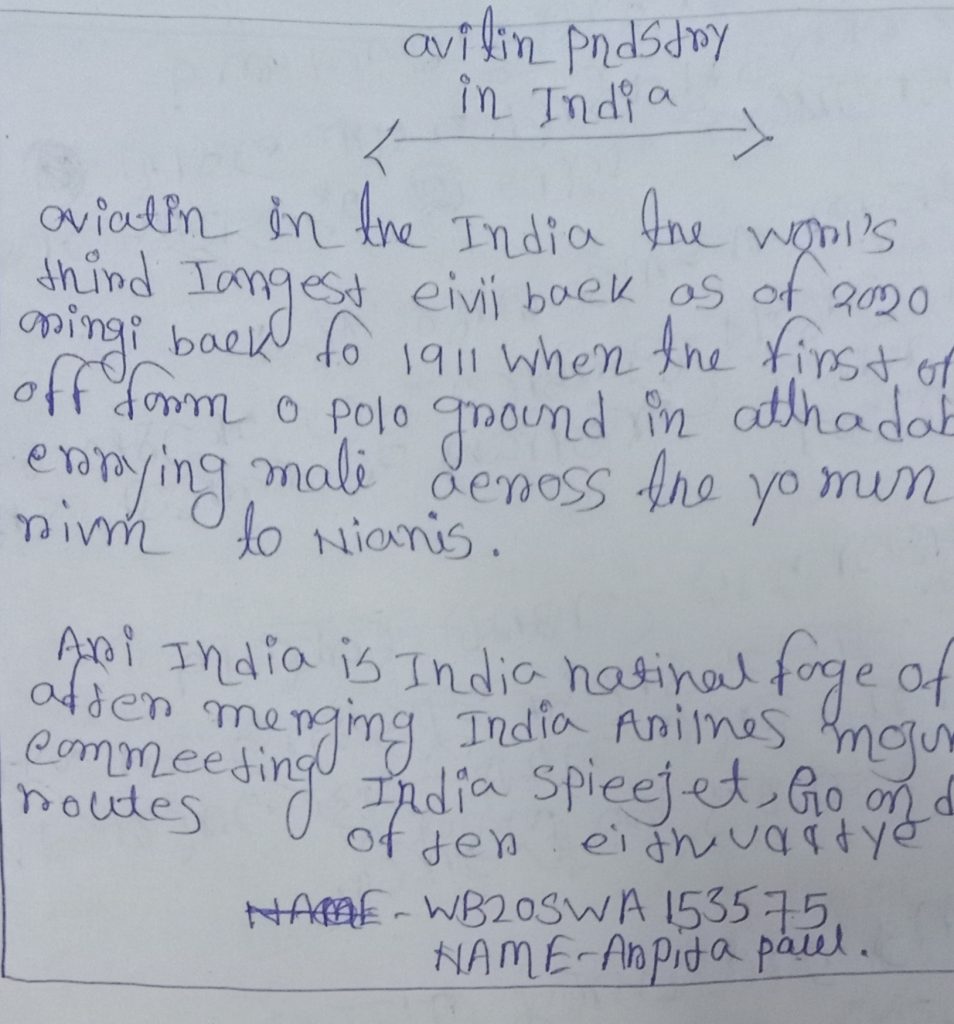 avitin pndstry
in India
aviatin in the India the worl's
third Iangest eivii baek as of 2020
oringi baek to 1911 when the first of
off form o polo ground in allhadab
errying mali across the yo men
rivm to Nianis.
Ari India is India natinal foge of
after merging India Arilnes mojur
commeeting India Spieejet, Go and
routes often eithvattye
NAME - WB20SWA 153575
NAME-Arpita paul.